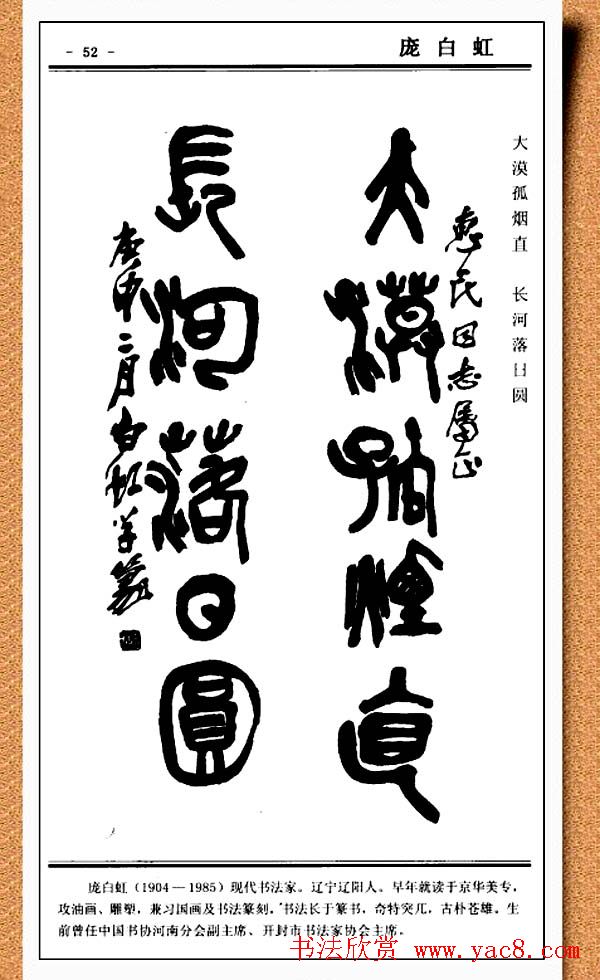 - 52 -
庞白虹
大漠孤烟直 长河落日圆
惠民同志属正
大漠孤烟直
長河落日圓
庚申二月白虹学篆
庞白虹（1904—1985）现代书法家。辽宁辽阳人。早年就读于京华美专，
攻油画、雕塑，兼习国画及书法篆刻。书法长于篆书，奇特突兀，古朴苍雄。生
前曾任中国书协河南分会副主席、开封市书法家协会主席。
书法欣赏 www.yac8.com